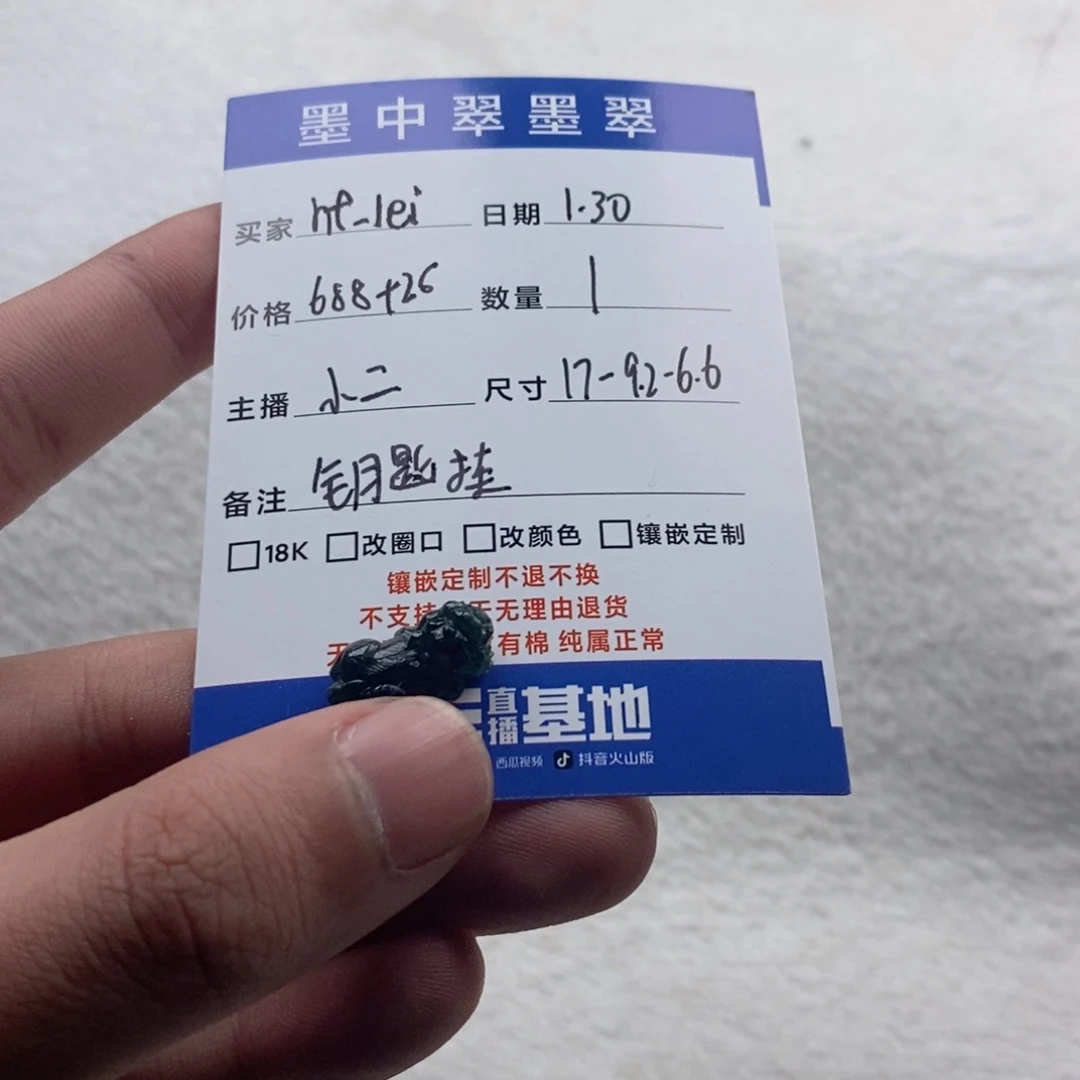 墨中翠墨翠
买家 hf-lei 日期 1.30
价格 688+26 数量 1
主播 小二 尺寸 17-9.2-6.6
备注 钥匙挂
□18K □改圈口 □改颜色 □镶嵌定制
镶嵌定制不退不换
不支持 天无理由退货
无 有棉 纯属正常
直播基地
西瓜视频 抖音火山版